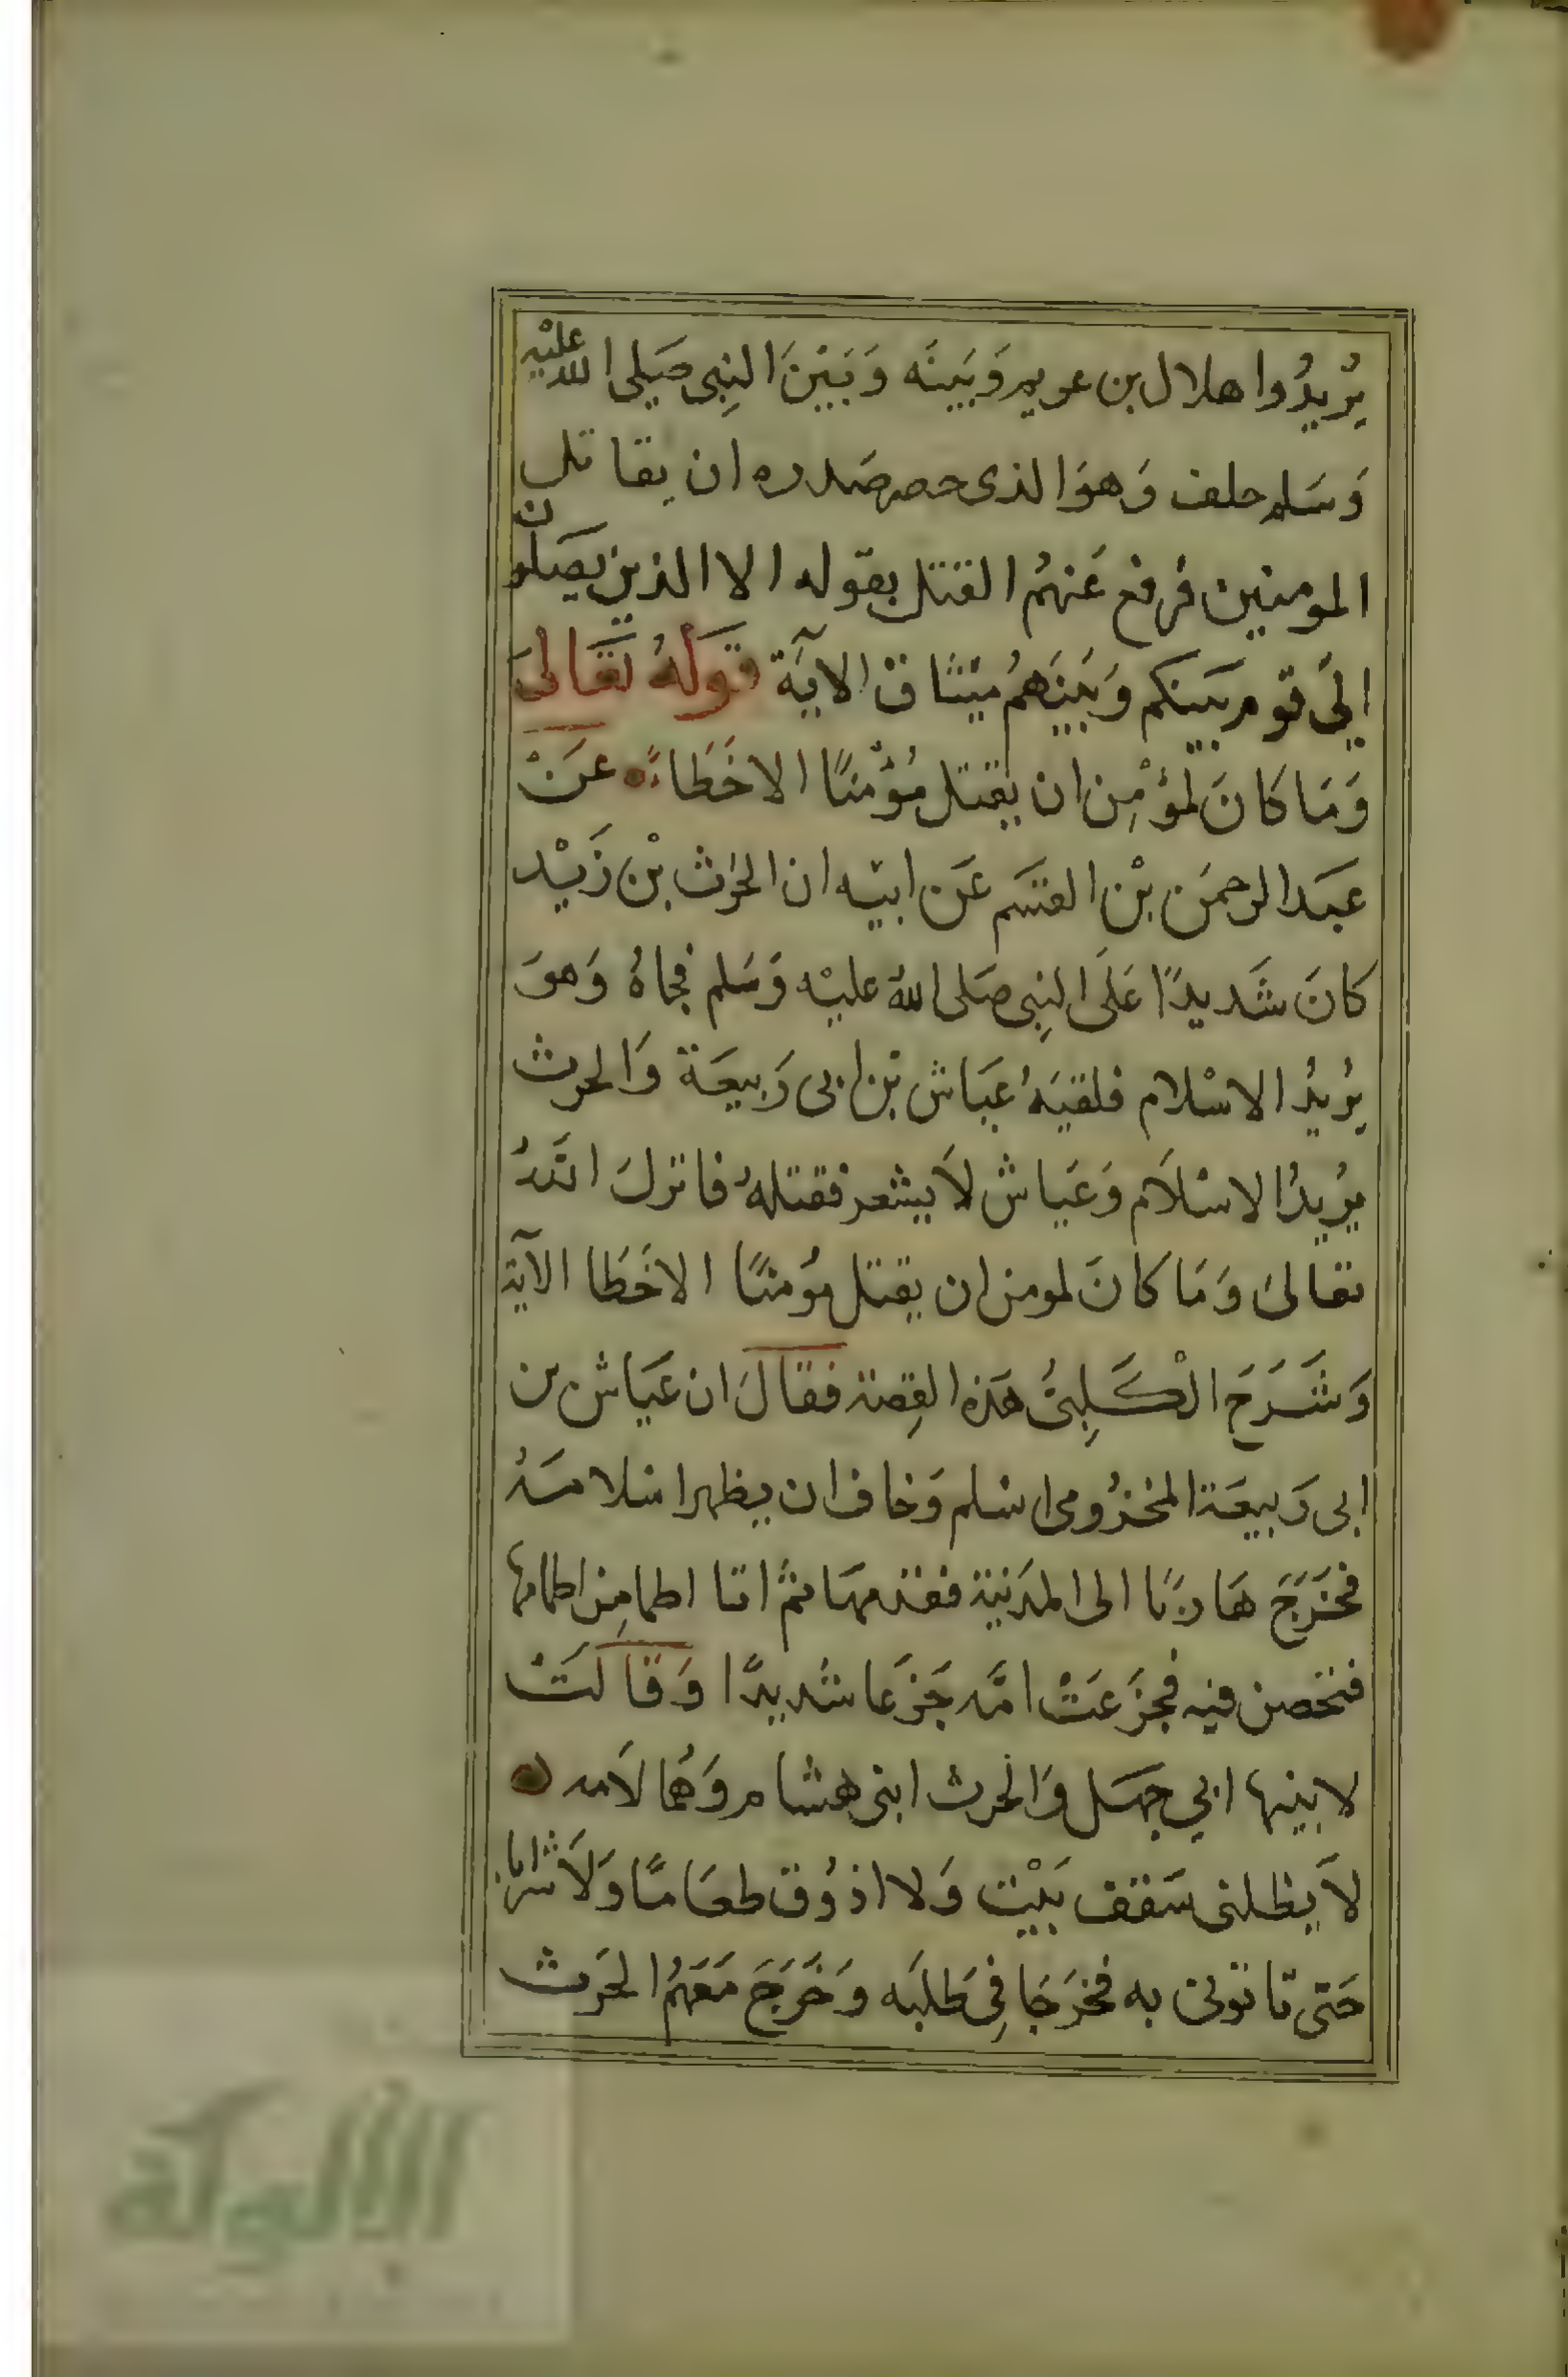 يُرِيدُوا هلال بن عويمر وَبَينَه وَبَيْنَ النبِى صَلى الله عليْه
وَسَلم حلف وَهوَ الذى حصر صَدره ان يقاتل
المومنين فرفع عَنهُم القتل بقوله الا الذين يصَلُون
الِى قوم بَينكم وَبَينَهمُ ميثاق الآية قَولهُ تَعَالىَ
وَمَا كانَ لمؤمِن ان يقتل مُؤْمنًا الا خَطَاءً عَنْ
عبَد الرحمَن بْن القسَم عَن ابيْه ان الحرٰث بْن زَيْد
كانَ شَديدًا عَلَى النبِى صَلى اللهُ عليْه وَسَلم فجاهُ وَهوَ
يُريدُ الاسْلام فلقيَهُ عَيَاش بْن ابى رَبيعَة وَالحرث
يُريدُ الاسْلاَم وَعَياش لاَ يشعر فقتلهُ فانزلَ اللهُ
تعَالىَ وَمَا كانَ لمومن ان يقتل مؤمنًا الا خَطَا الآية
وَشَرَحَ الْكَلِبىُ هَذه القِصة فقالَ ان عَيَاش بن
ابى رَبيعَة المخزُومى اسلم وَخاف ان يظهر اسلامَهُ
فخَرَجَ هَاربًا الى المدَينة فقدمهَا ثمَ اتا اطما مِن اطامها
فتحصن فيه فجزَعَتْ امَّه جَزَعَا شديدًا وَقالَتْ
لابنيها ابي جهَل وَالحرث ابنى هشام وَهُما لاَمه
لاَ يظلنى سَقف بَيْت وَلا اذوُق طعَامًا وَلاَ شرابا
حَتى تاتونى به فخرَجَا فِى طَلبَه وَخَرَجَ مَعَهُم الحَرث
الألوكة